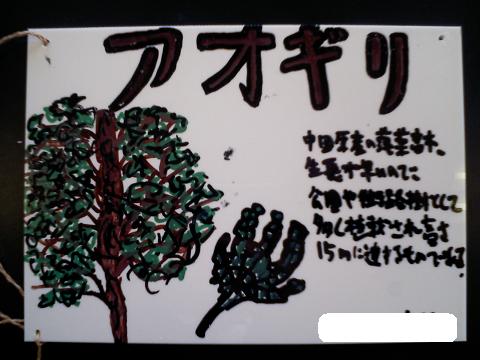 アオギリ
中国原産の落葉高木。
生長が早いので
公園や街路樹として
多く植栽され高さ
15mに達するものでもある。